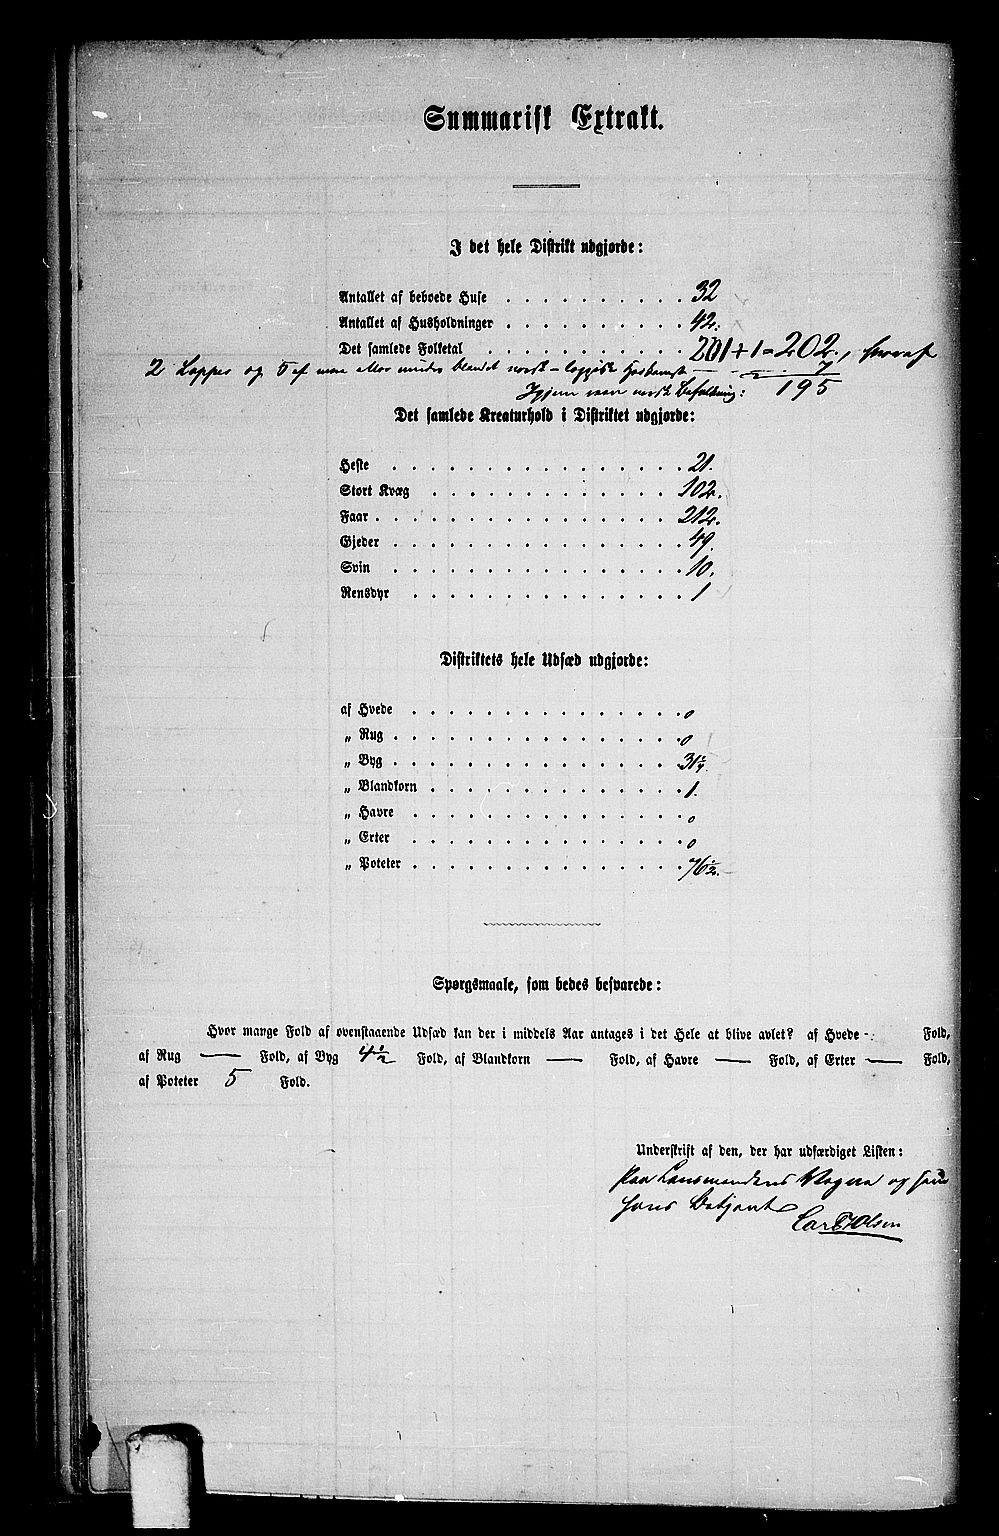 Summarisk Extrakt.
I det hele Distrikt udgjorde:
Antallet af beboede Huse . . . . . . . . . . 32
Antallet af Husholdninger . . . . . . . . . . 42.
Det samlede Folketal . . . . . . . . . . . 201+1=202., hvoraf
2 Lapper og 5 af mere eller mindre blandet norsk-lappisk Herkomst — 7
Igjen ren norsk Befolkning: 195
Det samlede Kreaturhold i Distriktet udgjorde:
Heste . . . . . . . . . . . . . . . . 21.
Stort Kvæg . . . . . . . . . . . . . . 102.
Faar . . . . . . . . . . . . . . . . . 212.
Gjeder . . . . . . . . . . . . . . . . 49.
Svin . . . . . . . . . . . . . . . . 10.
Rensdyr . . . . . . . . . . . . . . . 1
Distriktets hele Udsæd udgjorde:
af Hvede . . . . . . . . . . . . . . . 0
„ Rug . . . . . . . . . . . . . . . . 0
„ Byg . . . . . . . . . . . . . . . . 31¼.
„ Blandkorn . . . . . . . . . . . . . . 1.
„ Havre . . . . . . . . . . . . . . . 0
„ Erter . . . . . . . . . . . . . . . 0
„ Poteter . . . . . . . . . . . . . . . 76½.
Spørgsmaale, som bedes besvarede:
Hvor mange Fold af ovenstaaende Udsæd kan der i middels Aar antages i det Hele at blive avlet? af Hvede - Fold,
af Rug — Fold, af Byg 4½ Fold, af Blandkorn — Fold, af Havre — Fold, af Erter — Fold,
af Poteter 5 Fold.
Underskrift af den, der har udfærdiget Listen:
Paa Lensmandens Vegne og som
hans Betjent
Carl Olsen